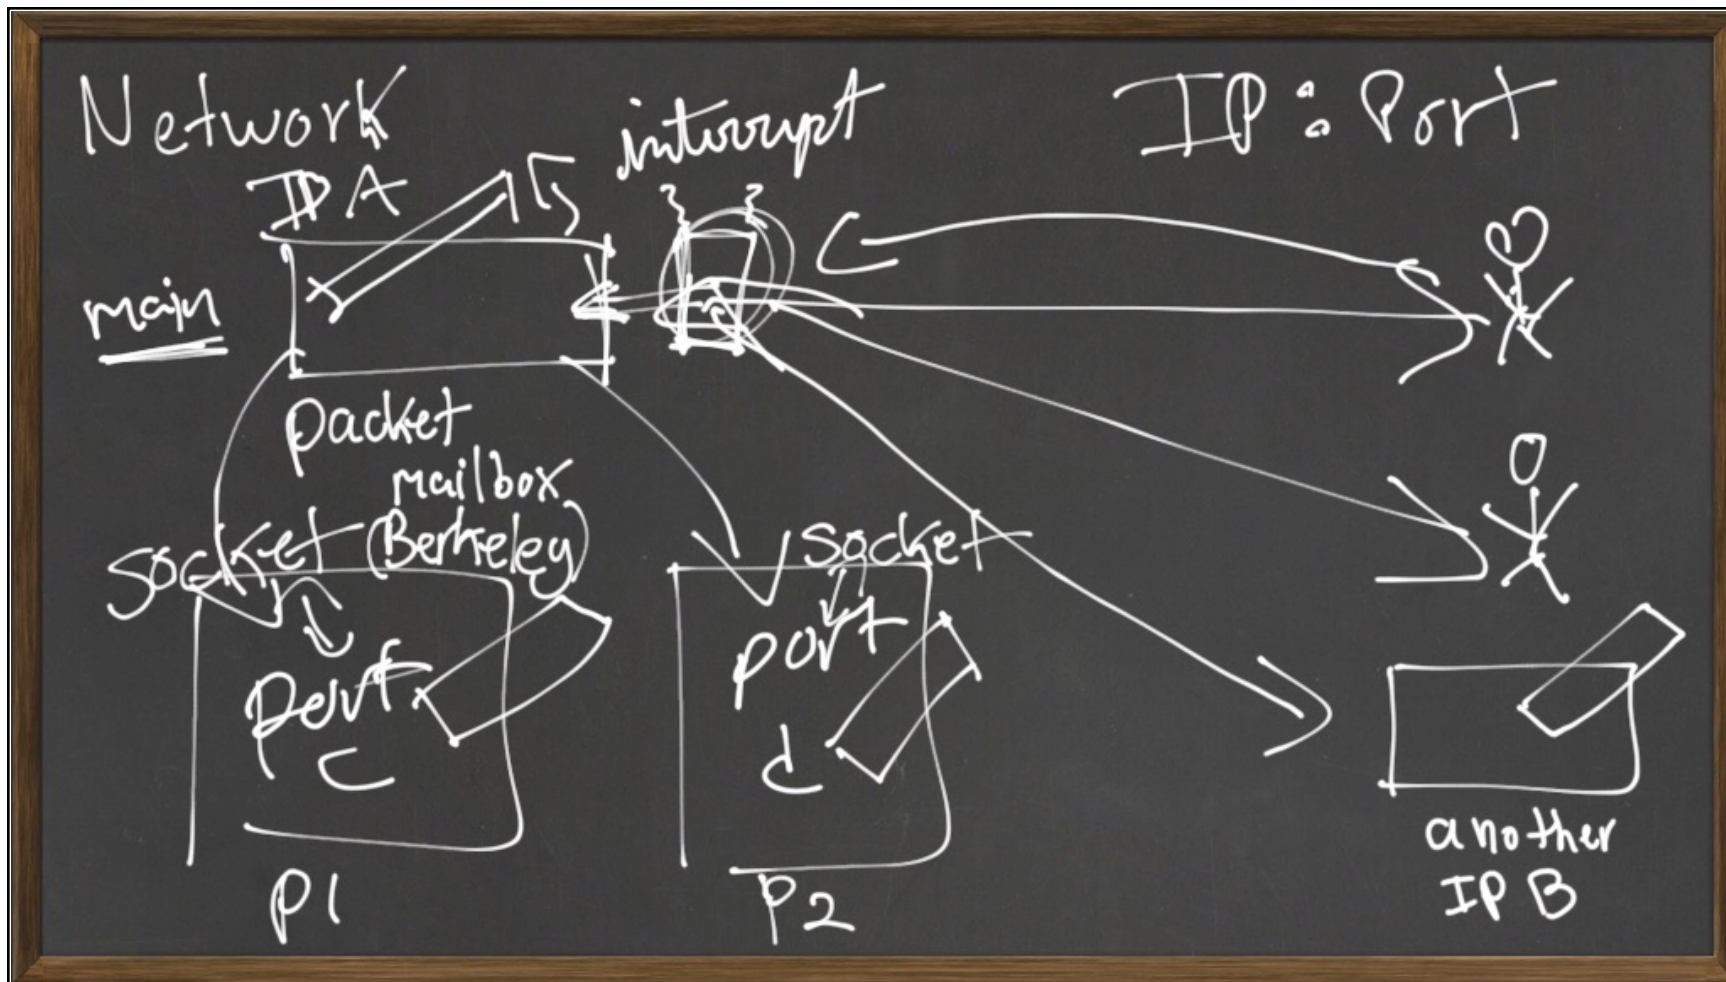 Network
interrupt
IP : Port
IP A
main
packet
mailbox
socket (Berkeley)
socket
port
c
port
d
P1
P2
another
IP B